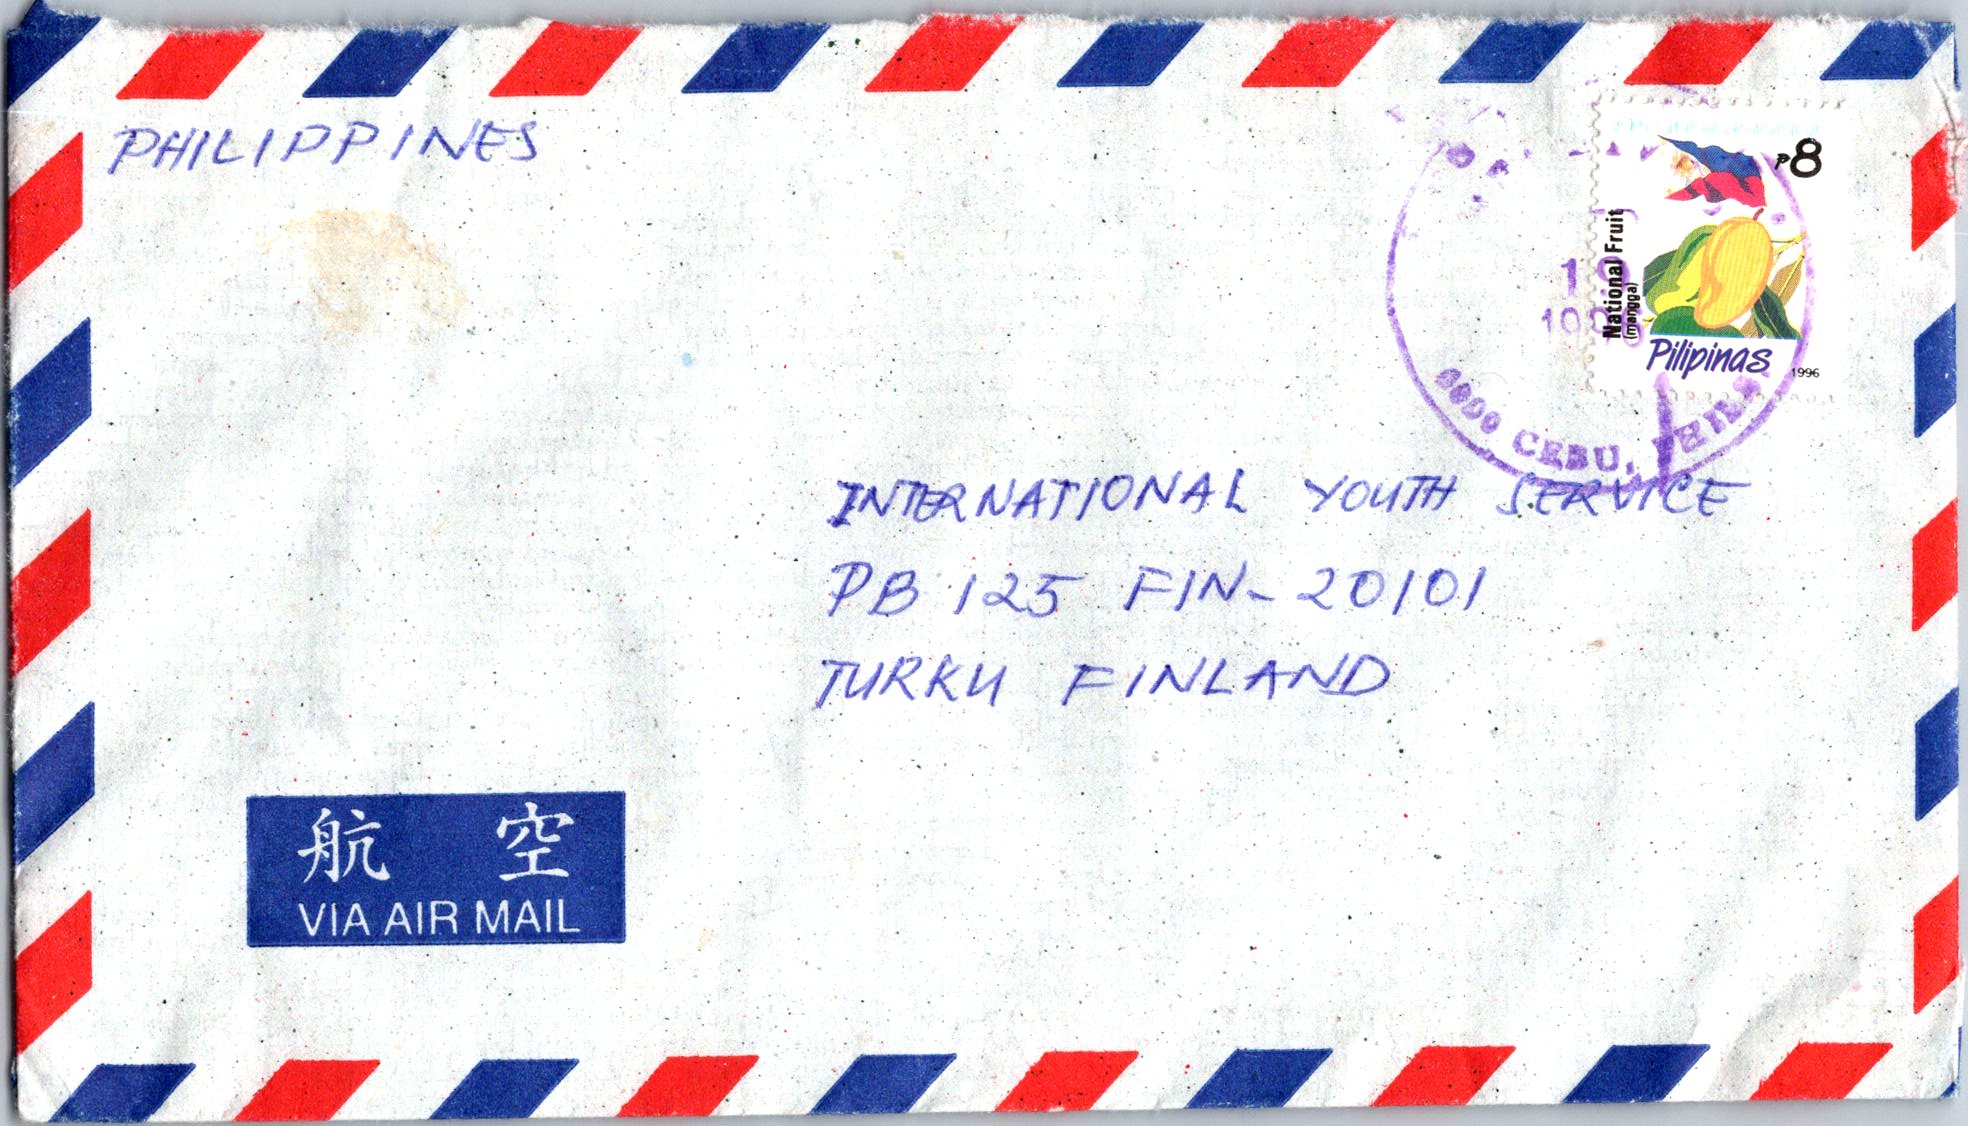 PHILIPPINES
₱8
National Fruit
(mangga)
Pilipinas
1996
6000 CEBU, PHIL
INTERNATIONAL YOUTH SERVICE
PB 125 FIN- 20101
TURKU FINLAND
航 空
VIA AIR MAIL